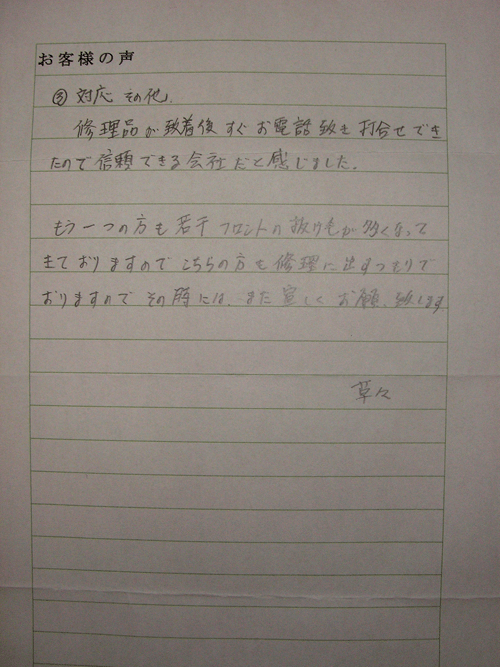 お客様の声
③ 対応 その他.
修理品が到着後すぐお電話致し打合せでき
たので信頼できる会社だと感じました.
もう一つの方も若干フロントの抜け毛が多くなって
きておりますのでこちらの方も修理に出すつもりで
おりますのでその時には、また宜しくお願い致します
草々